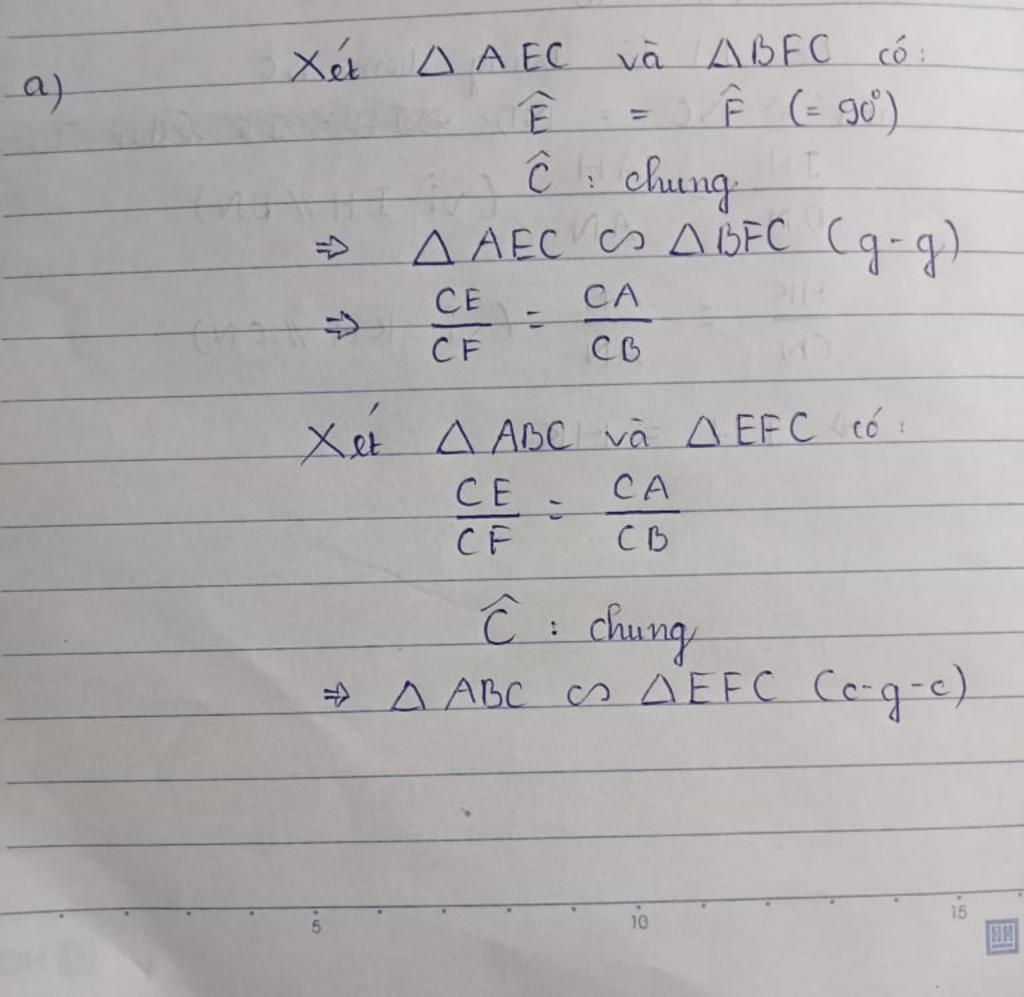 a) Xét △ AEC và △BFC có:
Ê = F̂ (= 90°)
Ĉ : chung
⇒ △ AEC ∽ △BFC (g-g)
⇒ CE/CF = CA/CB
Xét △ ABC và △ EFC có:
CE/CF = CA/CB
Ĉ : chung
⇒ △ ABC ∽ △EFC (c-g-c)
5 10 15
HH